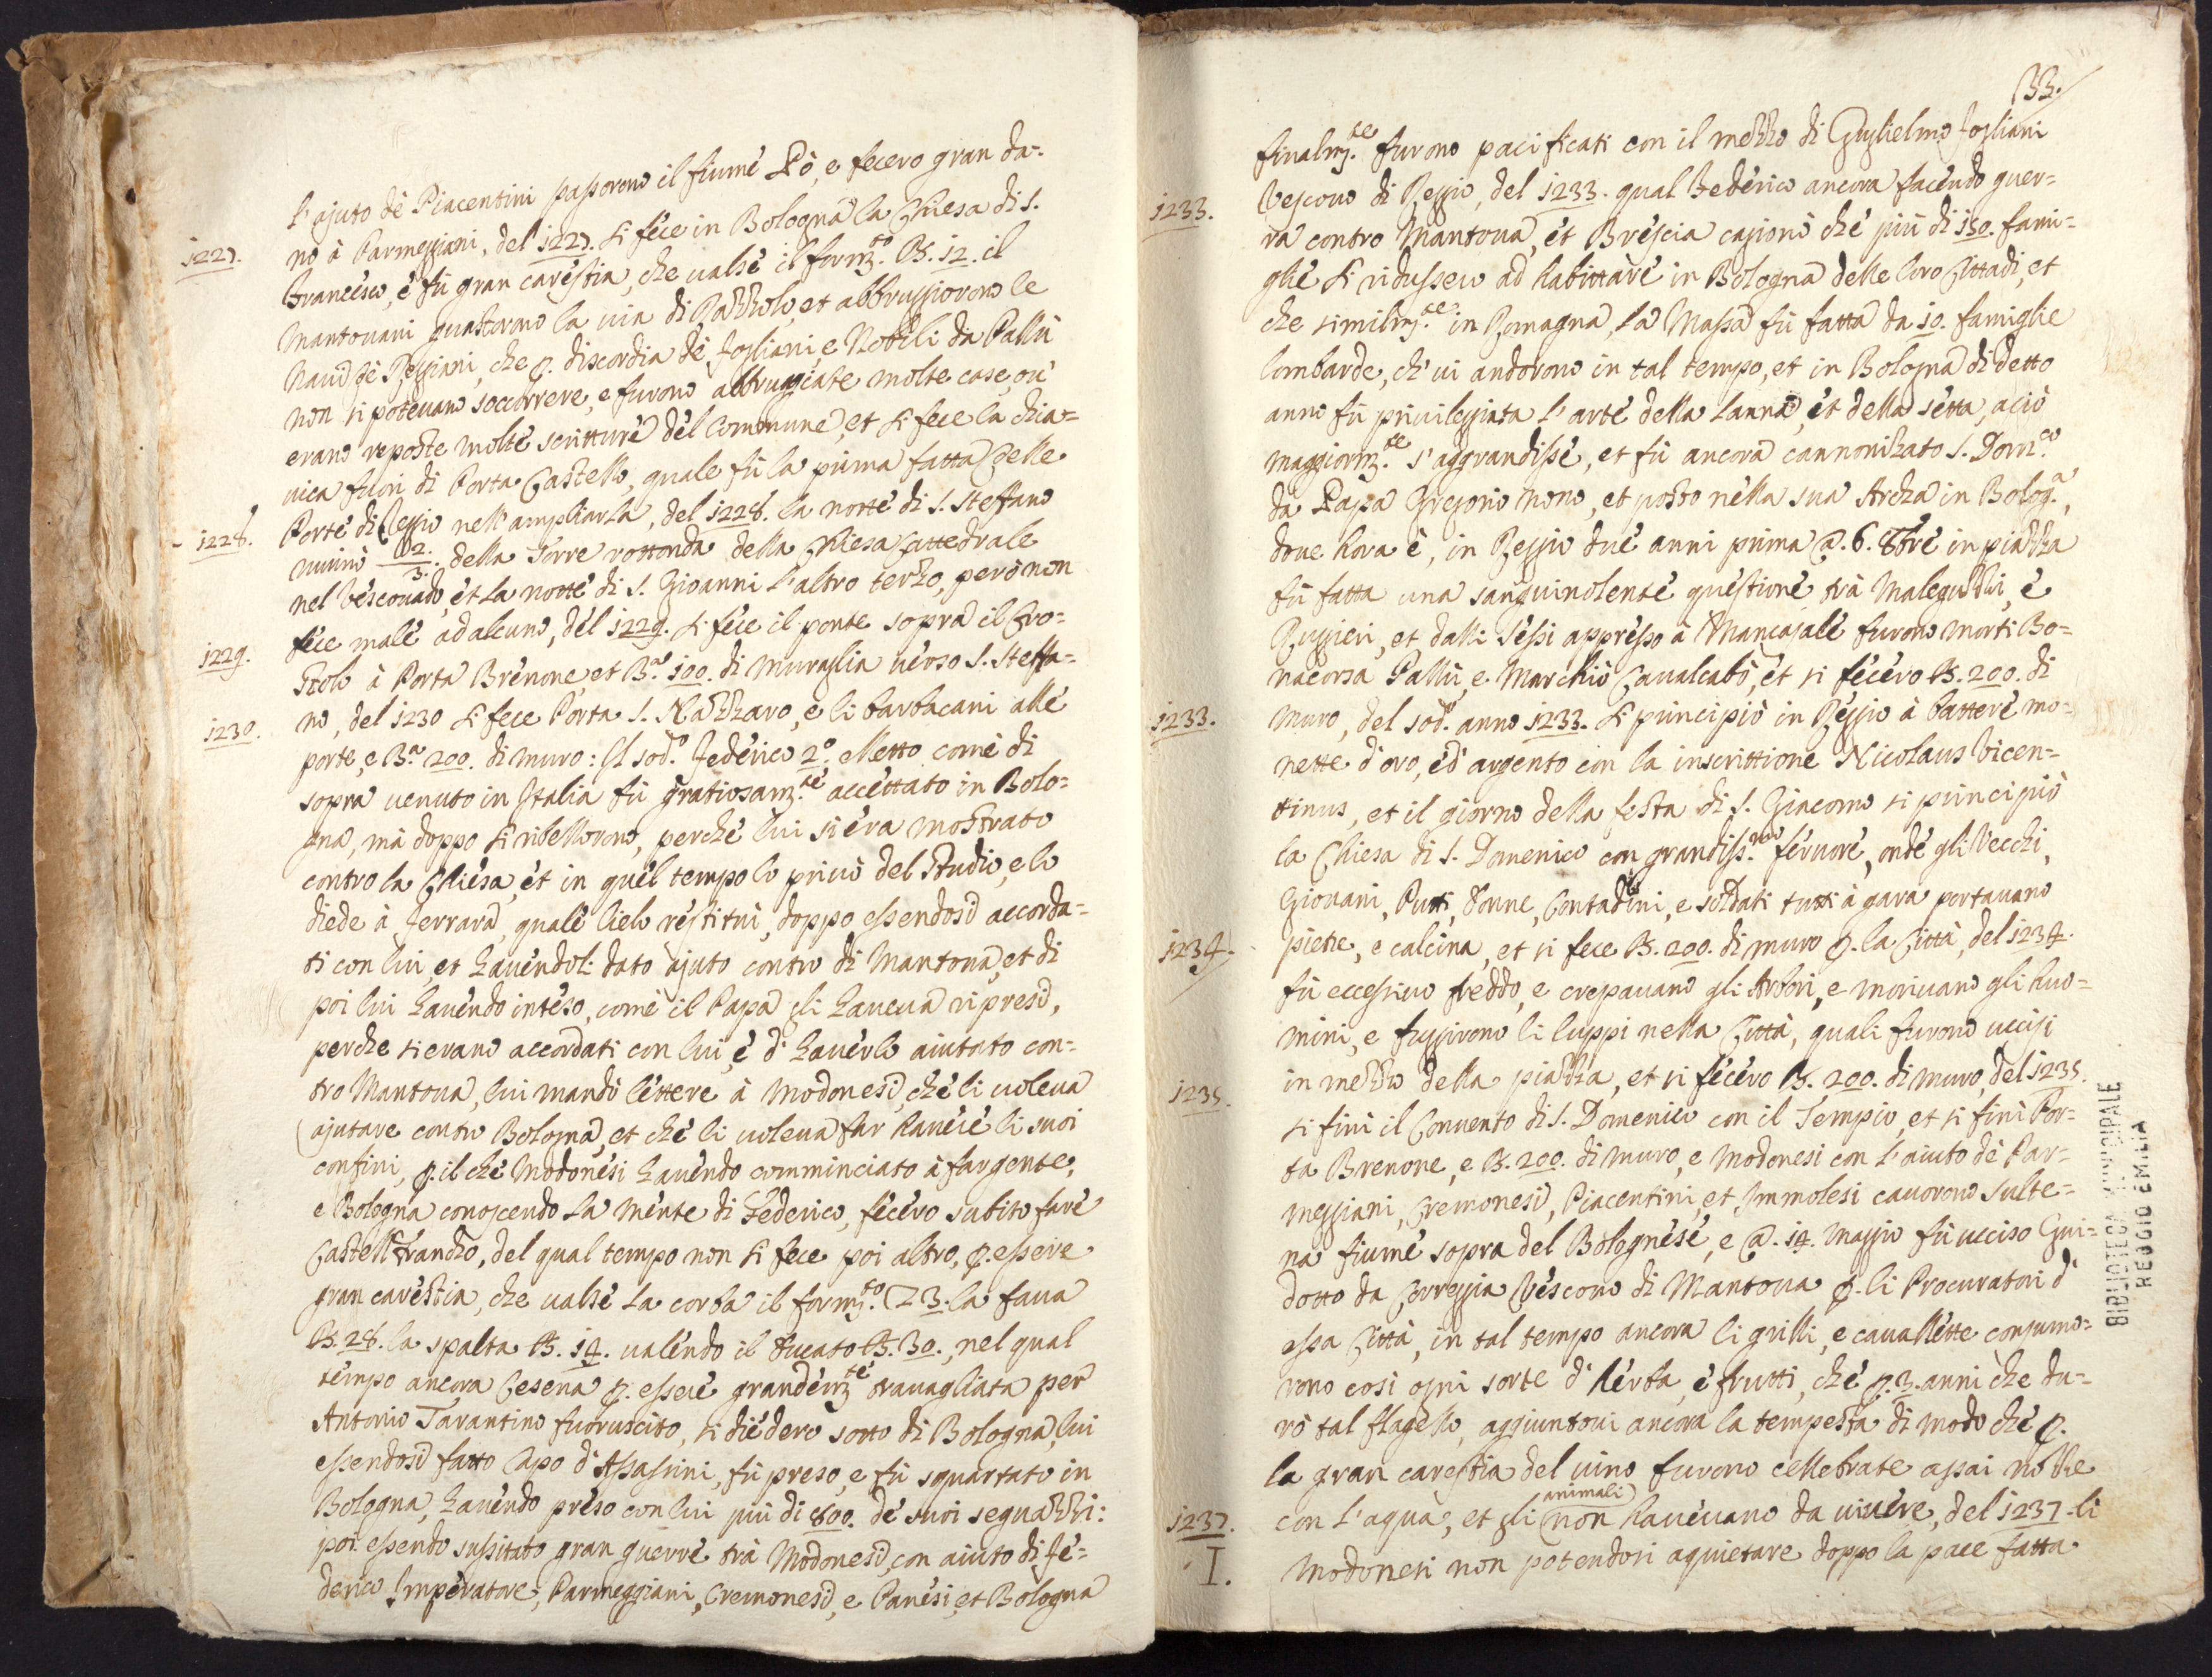 l'ajuto dè Piacentini passorono il fiume Pò, e fecero gran da=
1227. no à Parmeggiani, del 1227. si fece in Bologna la Chiesa di S.
Francesco, e fù gran carestia, che valse il form.to B. 12. il
Mantovani guastorono la via di Razzolo, et abbruggiorono le
Navi dè Reggiani, che p. discordia dè Fogliani, e Nobili da Pallù
non si potevano soccorrere, e furono abbruggiate molte case, ov'
erano reposte molte scritture del Commune, et si fece la chia=
vica fuori di Porta Castello, quale fù la prima fatta delle
1228. Porte di Reggio nell'ampliarla, del 1228. la notte di S. Steffano
ruinò 2/3. della Torre rottonda della Chiesa Cattedrale
nel Vescovado, et la notte di S. Gioanni l'altro terzo, però non
1229. fece male ad alcuno, del 1229. si fece il ponte sopra il Cro=
stolo à Porta Brenone, et B.a 100. di muraglia verso S. Steffa=
1230. no, del 1230 si fece Porta S. Nazzaro, e li barbacani alle
porte, e B.a 200. di muro: Il sod.o Federico 2.o eletto come di
sopra venuto in Italia fù gratiosam.te accettato in Bolo=
gna, mà doppo si ribellorono, perché lui si era mostrato
contro la Chiesa, et in quel tempo lo privò del Studio, e lo
diede à Ferrara, quale lielo restituì, doppo essendosi accorda=
ti con lui, et havendoli dato ajuto contro di Mantova, et di
poi lui havendo inteso, come il Papa gli haveva ripresi,
perche si erano accordati con lui, e d'haverlo aiutato con=
tro Mantova, lui mandò lettere à Modonesi, che li voleva
ajutare contro Bologna, et che li voleva far havere li suoi
confini, p. il che Modonesi havendo comminciato à far gente,
e Bologna conoscendo la mente di Federico, fecero subito fare
Castell Franco, del qual tempo non si fece poi altro, p. essere
gran carestia, che valse la corba il form.to L 3. la fava
B. 28. la spalta B. 14. valendo il Ducato B. 30., nel qual
tempo ancora Cesena p. essere grandem.te travagliata per
Antonio Tarantino fuoruscito, si diedero sotto di Bologna, lui
essendosi fatto Capo d'Assassini, fù preso, e fù squartato in
Bologna, havendo preso con lui più di 800. de suoi seguazzi:
poi essendo sussitato gran guerre trà Modonesi, con aiuto di Fe=
derico Imperatore, Parmeggiani, Cremonesi, e Pavesi, et Bologna
33.
finalm.te furono pacificati con il mezzo di Guglielmo Fogliani
1233. Vescovo di Reggio, del 1233. qual Federico ancora facendo guer=
ra contro Mantova, et Brescia cagionò che più di 150. fami=
glie si ridussero ad habittare in Bologna delle loro Cittadi, et
che similm.te in Romagna, la Massa fù fatta da 10. famiglie
lombarde, ch'vi andorono in tal tempo, et in Bologna di detto
anno fù privileggiata l'arte della Lanna, et della setta, aciò
maggiorm.te s'aggrandisse, et fù ancora cannonizato S. Dom.co
da Papa Gregorio nono, et posto nella sua Archa in Bolog.a,
dove hora è, in Reggio due anni prima @. 6. 8bre in piazza
fù fatta una sanguinolente questione trà Maleguzzi, e
Ruggieri, et dalli Sessi appresso à Mancasale furono morti Bo=
nacorsa Pallù, e Marchiò Cavalcabò, et si fecero B. 200. di
1233. muro, del sod.o anno 1233. si principiò in Reggio à battere mo=
nette d'oro, ed'argento con la inscrittione Nicolaus Vicen=
tinus, et il giorno della festa di S. Giacomo si principiò
la Chiesa di S. Domenico con grandiss.mo fervore, onde gli Vecchi,
Giovani, Putti, Donne, Contadini, e soldati tutti à gara portavano
1234. pietre, e calcina, et si fece B. 200. di muro p. la Città, del 1234.
fù eccessivo freddo, e crepavano gli Arbori, e morivano gli huo=
mini, e fuggirono li luppi nella Città, quali furono uccisi
1235. in mezzo della piazza, et si fecero B. 200. di muro, del 1235.
si finì il Convento di S. Domenico con il Tempio, et si finì Por=
ta Brenone, e B. 200. di muro, e Modonesi con l'aiuto dè Par=
meggiani, Cremonesi, Piacentini, et Immolesi cavorono Sulte=
na fiume sopra del Bolognese, e @. 14. Maggio fù ucciso Gui=
dotto da Correggia Vescovo di Mantova p. li Procuratori d'
essa Città, in tal tempo ancora li grilli, e cavallette consumo=
rono così ogni sorte d'herba, e frutti, che p. 3. anni che du=
rò tal flagello, aggiuntovi ancora la tempesta di modo che p.
la gran carestia del vino furono cellebrate assai nozze
1237. con l'aqua, et gli animali non havevano da vivere, del 1237. li
I. Modonesi non potendosi aquietare doppo la pace fatta
BIBLIOTECA MUNICIPALE
REGGIO EMILIA